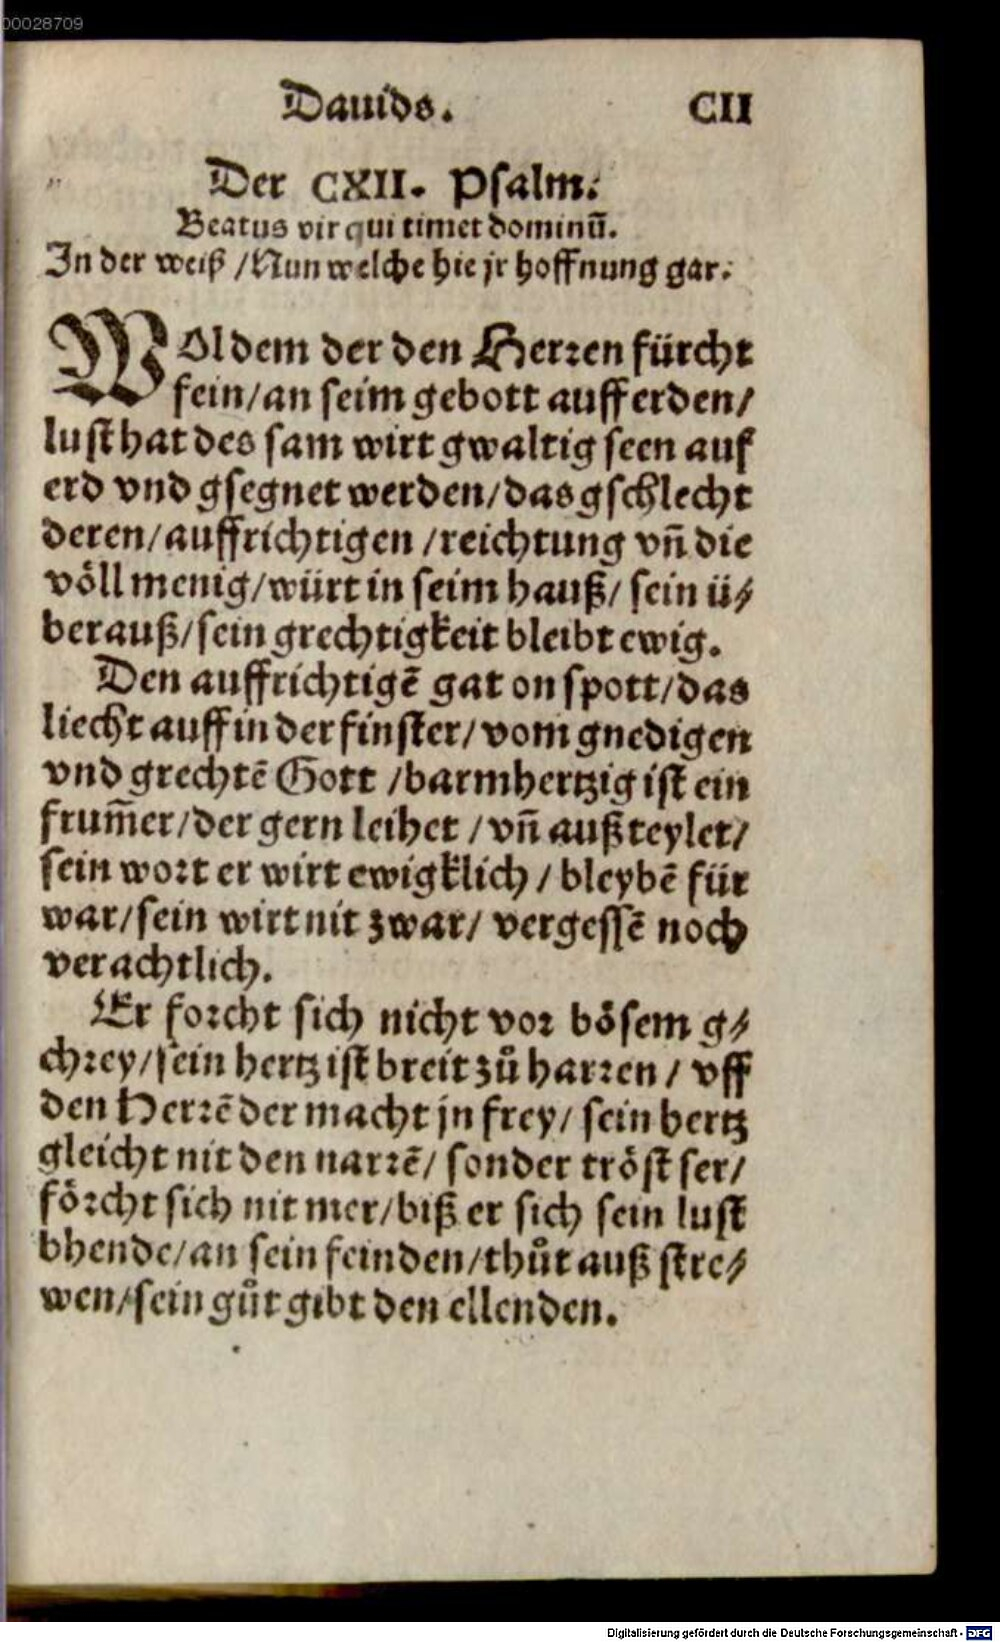 00028709
Dauids. CII
Der CXII. Psalm.
Beatus vir qui timet dominū.
In der weiß /Nun welche hie jr hoffnung gar.
WOl dem der den Herren fürcht
fein/an seim gebott auff erden/
lust hat des sam wirt gwaltig seen auf
erd vnd gsegnet werden/das gschlecht
deren/auffrichtigen /reichtung vn̄ die
völl menig/würt in seim hauß/ sein ü⸗
berauß/sein grechtigkeit bleibt ewig.
Den auffrichtigē gat on spott/das
liecht auff in der finster/vom gnedigen
vnd grechtē Gott /barmhertzig ist ein
frum̄er/der gern leihet /vn̄ auß teylet/
sein wort er wirt ewigklich / bleybē für
war/sein wirt nit zwar/ vergessē noch
verachtlich.
Er forcht sich nicht vor bösem g⸗
chrey/sein hertz ist breit zů harren / vff
den Herrē der macht jn frey/ sein hertz
gleicht nit den narrē/ sonder tröst ser/
förcht sich nit mer/biß er sich sein lust
bhende/an sein feinden/thůt auß stre⸗
wen/sein gůt gibt den ellenden.
Digitalisierung gefördert durch die Deutsche Forschungsgemeinschaft - DFG